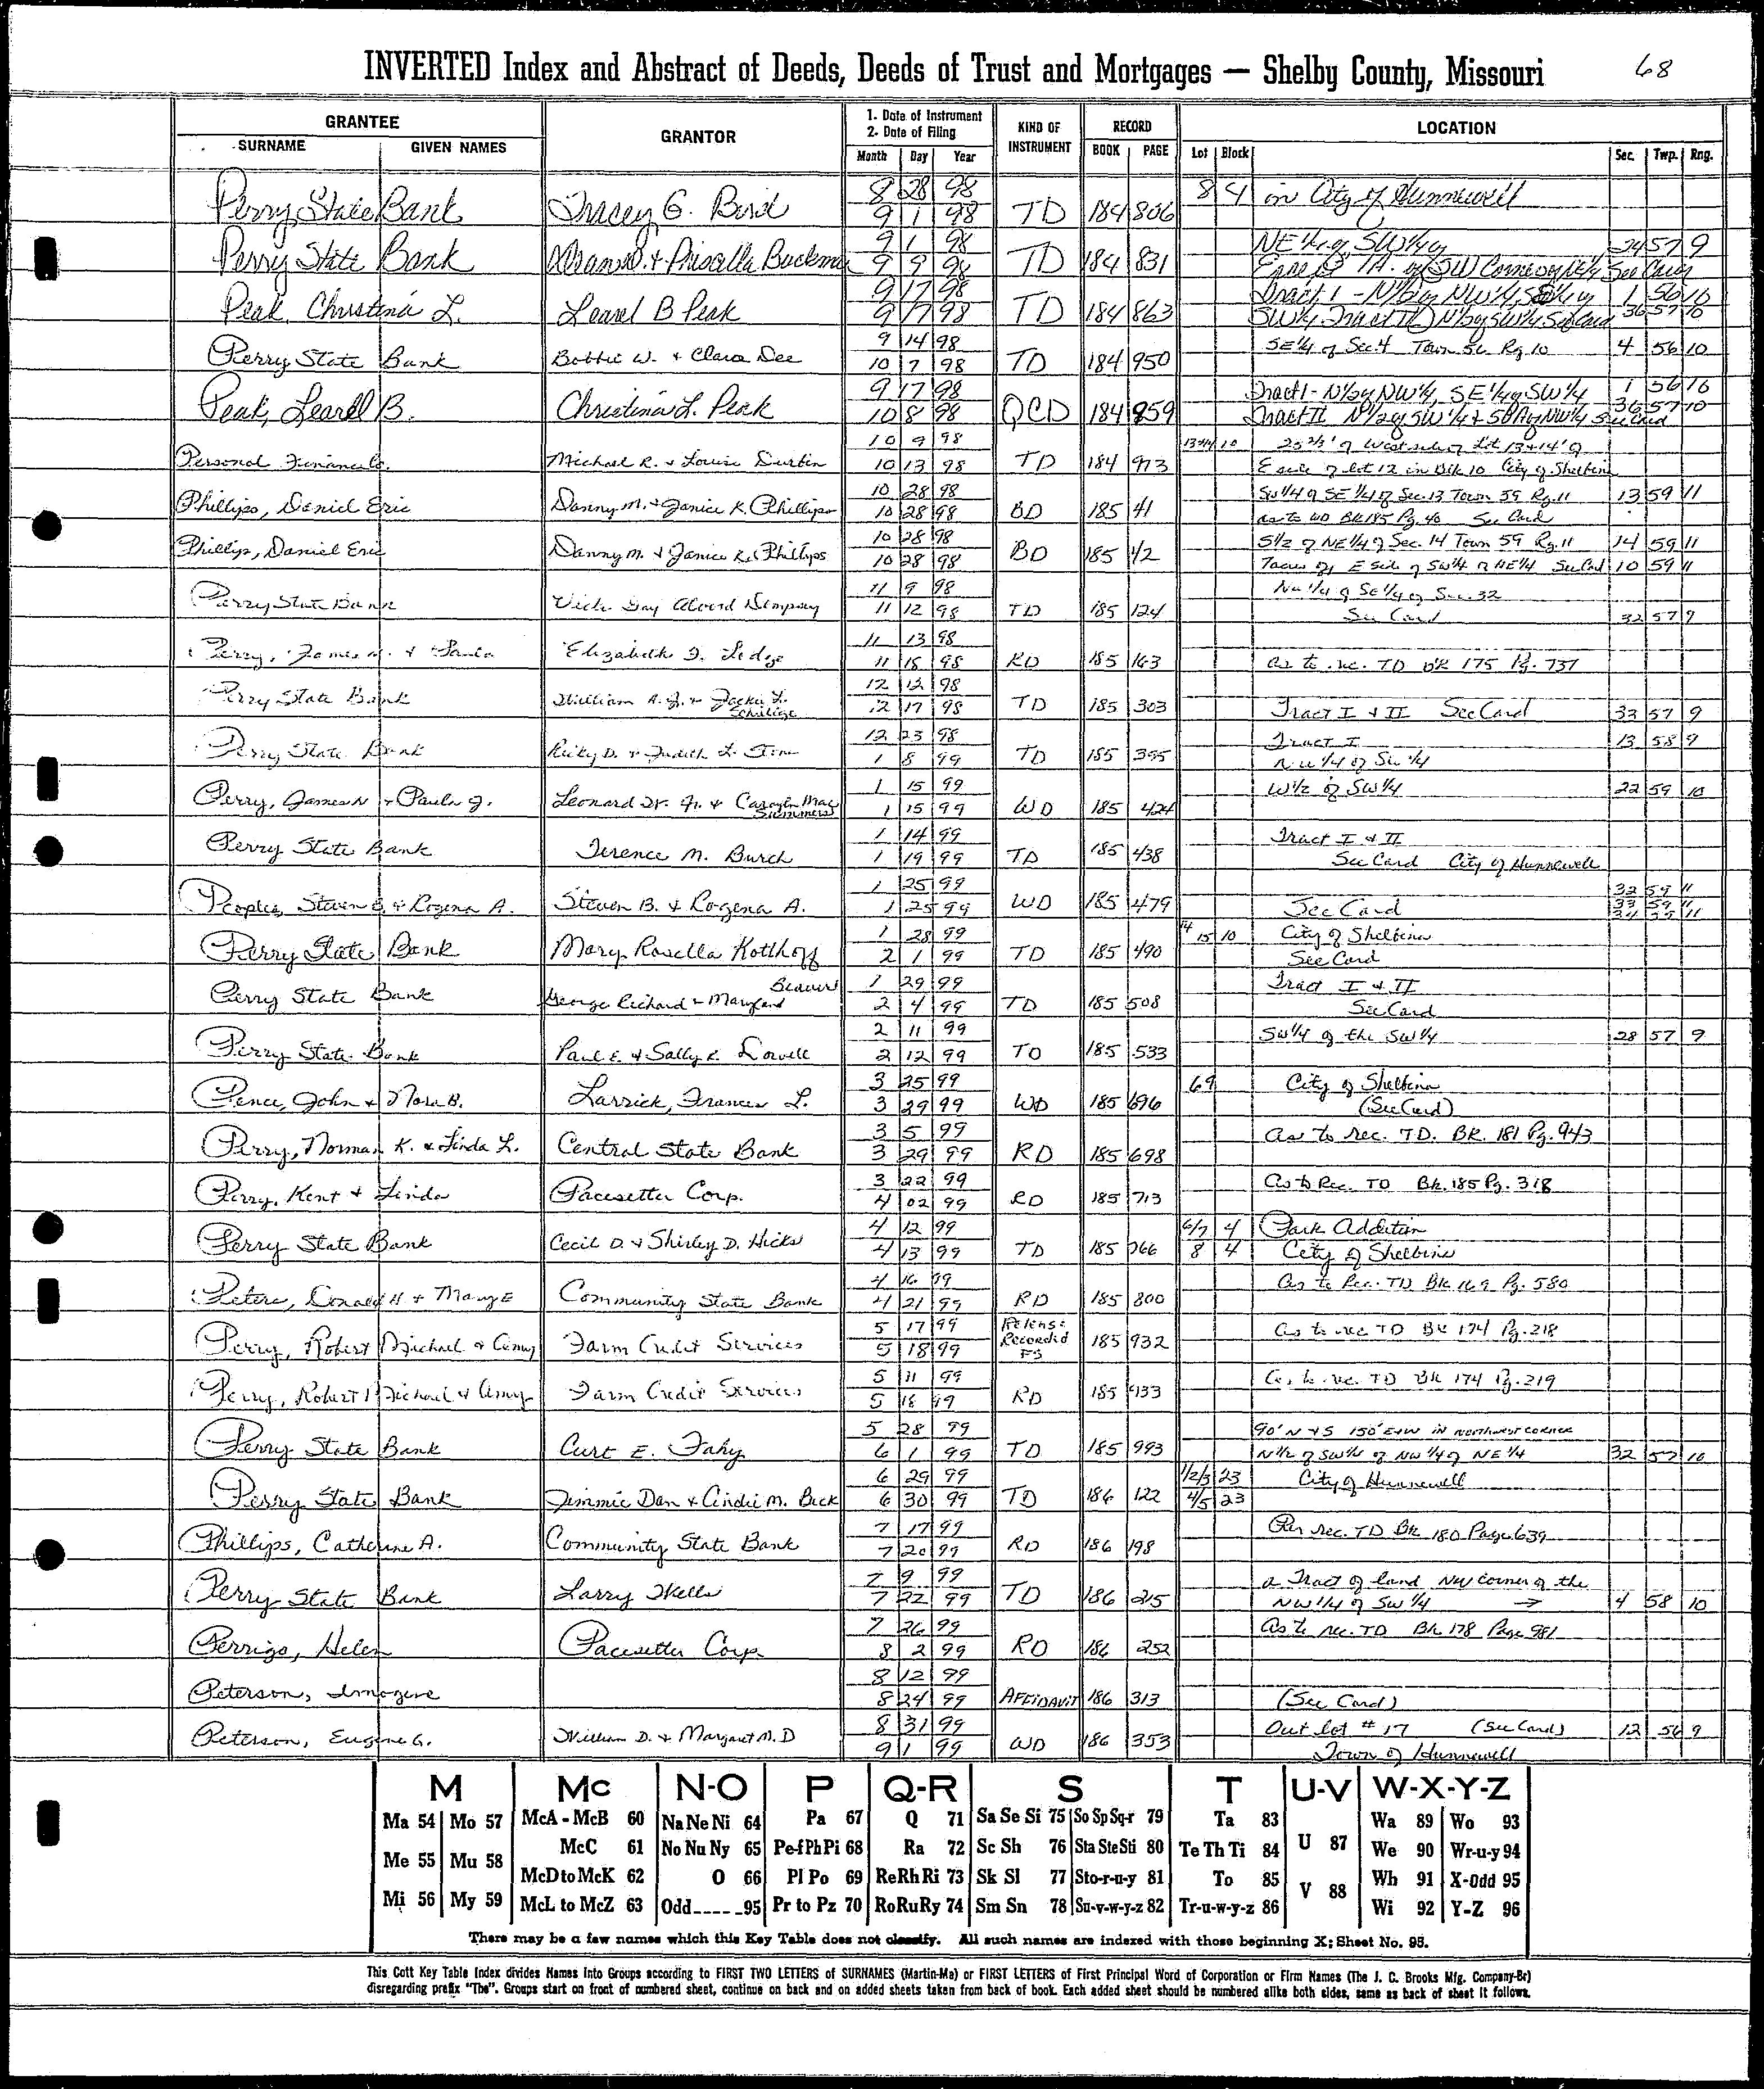 INVERTED Index and Abstract of Deeds, Deeds of Trust and Mortgages — Shelby County, Missouri 68
GRANTEE GRANTOR 1. Date of Instrument 2. Date of Filing KIND OF INSTRUMENT RECORD LOCATION
SURNAME GIVEN NAMES Month Day Year BOOK PAGE Lot Block Sec. Twp. Rng.
8 28 98 8 4 in City of Hunnewell
Perry State Bank Tracey G. Bird 9 1 98 TD 184 806
9 1 98 NE 1/4 of SW 1/4 of 24 57 9
Perry State Bank & Priscilla Buckman 9 9 98 TD 184 831 1A. of SW Corner of See Card
9 17 98 Tract I - N 1/2 of NW 1/4, 1 56 10
Peak, Christina L. Learel B Peak 9 17 98 TD 184 863 SW 1/4 Tract II N 1/2 of SW 1/4 See Card 36 57 10
9 14 98 SE 1/4 of Sec 4 Town 56 Rg 10 4 56 10
Perry State Bank Bobbie W. & Clara Dee 10 7 98 TD 184 950
9 17 98 Tract I - N 1/2 of NW 1/4, SE 1/4 of SW 1/4 1 56 10
Peak, Learel B. Christina L. Peak 10 8 98 QCD 184 959 Tract II N 1/2 of SW 1/4 & NW 1/4 See Card 36 57 10
10 9 98 13+14 10 25 2/3' of West side of Lot 13 + 14' of
Personal Finance Co. Michael R. & Louise Durbin 10 13 98 TD 184 973 E side of lot 12 in Blk 10 City of Shelbina
10 28 98 SW 1/4 of SE 1/4 of Sec. 13 Town 59 Rg. 11 13 59 11
Phillips, Daniel Eric Danny M. & Janice K. Phillips 10 28 98 BD 185 41 as to WD Bk 185 Pg. 40 See Card
10 28 98 S 1/2 of NE 1/4 of Sec. 14 Town 59 Rg. 11 14 59 11
Phillips, Daniel Eric Danny M. & Janice K. Phillips 10 28 98 BD 185 42 E side of SW 1/4 of NE 1/4 See Card 10 59 11
11 9 98 NW 1/4 of SE 1/4 of Sec. 32
Perry State Bank Vicki Gay Alvord Dempsey 11 12 98 TD 185 124 See Card 32 57 9
11 13 98
Perry, James N. & Paula Elizabeth J. 11 18 98 RD 185 163 as to rec. TD BK 175 Pg. 737
12 12 98
Perry State Bank William A. Jr. & Jackie L. 12 17 98 TD 185 303 Tract I & II See Card 33 57 9
12 23 98 Tract I 13 58 9
Perry State Bank Ricky D. & Judith L. 1 8 99 TD 185 395 NW 1/4 of SW 1/4
1 15 99 W 1/2 of SW 1/4 22 59 10
Perry, James N & Paula J. Leonard W. Jr. & Carolyn Mae Summers 1 15 99 WD 185 424
1 14 99 Tract I & II
Perry State Bank Terence M. Burch 1 19 99 TD 185 438 See Card City of Hunnewell
1 25 99 32 59 11
Peoples, Steven B. & Rogena A. Steven B. & Rogena A. 1 25 99 WD 185 479 See Card 33 59 11
34 59 11
1 28 99 14 15 10 City of Shelbina
Perry State Bank Mary Rosella Kotthoff 2 1 99 TD 185 490 See Card
Beauers 1 29 99 Tract I & II
Perry State Bank George Richard & 2 4 99 TD 185 508 See Card
2 11 99 SW 1/4 of the SW 1/4 28 57 9
Perry State Bank Paul E. & Sally K. Lovell 2 12 99 TD 185 533
3 25 99 69 City of Shelbina
Pence, John & Nora B. Larrick, Frances L. 3 29 99 WD 185 696 (See Card)
3 5 99 as to rec. TD. BK. 181 Pg. 943
Perry, Norman K. & Linda L. Central State Bank 3 29 99 RD 185 698
3 22 99 as to Rec. TD Bk. 185 Pg. 318
Perry, Kent & Linda Pacesetter Corp. 4 02 99 RD 185 713
4 12 99 6/7 4 Park Addition
Perry State Bank Cecil D. & Shirley D. Hicks 4 13 99 TD 185 766 8 4 City of Shelbina
4 16 99 as to Rec. TD Bk 169 Pg. 580
Peters, Donald H & Mary E Community State Bank 4 21 99 RD 185 800
5 17 99 Release as to rec TD BK 174 Pg. 218
Perry, Robert Michael & Amy Farm Credit Services 5 18 99 Recorded FS 185 932
5 11 99 as to rec. TD BK 174 Pg. 219
Perry, Robert Michael & Amy Farm Credit Services 5 18 99 RD 185 933
5 28 99 90' N & S 150' E & W in northwest corner
Perry State Bank Curt E. Fahy 6 1 99 TD 185 993 N 1/2 of SW 1/4 of NW 1/4 of NE 1/4 32 57 10
6 29 99 1/2/3 23 City of Hunnewell
Perry State Bank Jimmie Dan & Cindie M. Buck 6 30 99 TD 186 122 4/5 23
7 17 99 Per rec. TD Bk 180 Page 639
Phillips, Catherine A. Community State Bank 7 20 99 RD 186 198
7 9 99 a Tract of land NW corner of the
Perry State Bank Larry Wells 7 22 99 TD 186 215 NW 1/4 of SW 1/4 → 4 58 10
7 26 99 as to rec. TD Bk 178 Page 981
Perrigo, Helen Pacesetter Corp. 8 2 99 RD 186 252
8 12 99
Peterson, Imogene 8 24 99 AFFIDAVIT 186 313 (See Card)
8 31 99 Out lot # 17 (See Card) 12 56 9
Peterson, Eugene G. William D. & Margaret M. D 9 1 99 WD 186 353 Town of Hunnewell
M Mc N-O P Q-R S T U-V W-X-Y-Z
Ma 54 Mo 57 McA - McB 60 Na Ne Ni 64 Pa 67 Q 71 Sa Se Si 75 So Sp Sq-r 79 Ta 83 Wa 89 Wo 93
McC 61 No Nu Ny 65 Pe-f Ph Pi 68 Ra 72 Sc Sh 76 Sta Ste Sti 80 Te Th Ti 84 U 87 We 90 Wr-u-y 94
Me 55 Mu 58 McD to McK 62 O 66 Pl Po 69 Re Rh Ri 73 Sk Sl 77 Sto-r-u-y 81 To 85 V 88 Wh 91 X-Odd 95
Mi 56 My 59 McL to McZ 63 Odd ---- 95 Pr to Pz 70 Ro Ru Ry 74 Sm Sn 78 Su-v-w-y-z 82 Tr-u-w-y-z 86 Wi 92 Y-Z 96
There may be a few names which this Key Table does not classify. All such names are indexed with those beginning X; Sheet No. 95.
This Cott Key Table Index divides Names into Groups according to FIRST TWO LETTERS of SURNAMES (Martin-Ma) or FIRST LETTERS of First Principal Word of Corporation or Firm Names (The J. C. Brooks Mfg. Company-Br)
disregarding prefix "The". Groups start on front of numbered sheet, continue on back and on added sheets taken from back of book. Each added sheet should be numbered alike both sides, same as back of sheet it follows.